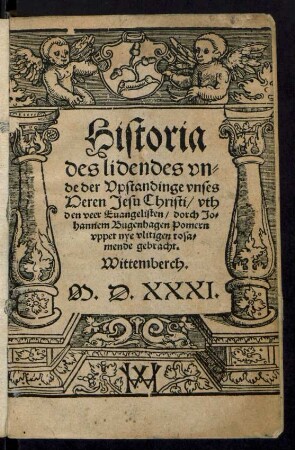 Historia
des lidendes vn-
de der Vpstandinge vnses
Heren Jesu Christi / vth
den veer Euangelisten / dorch Jo-
hannem Bugenhagen Pomern
vppet nye vlitigen tosa-
mende gebracht.
Wittemberch.
M. D. XXXI.